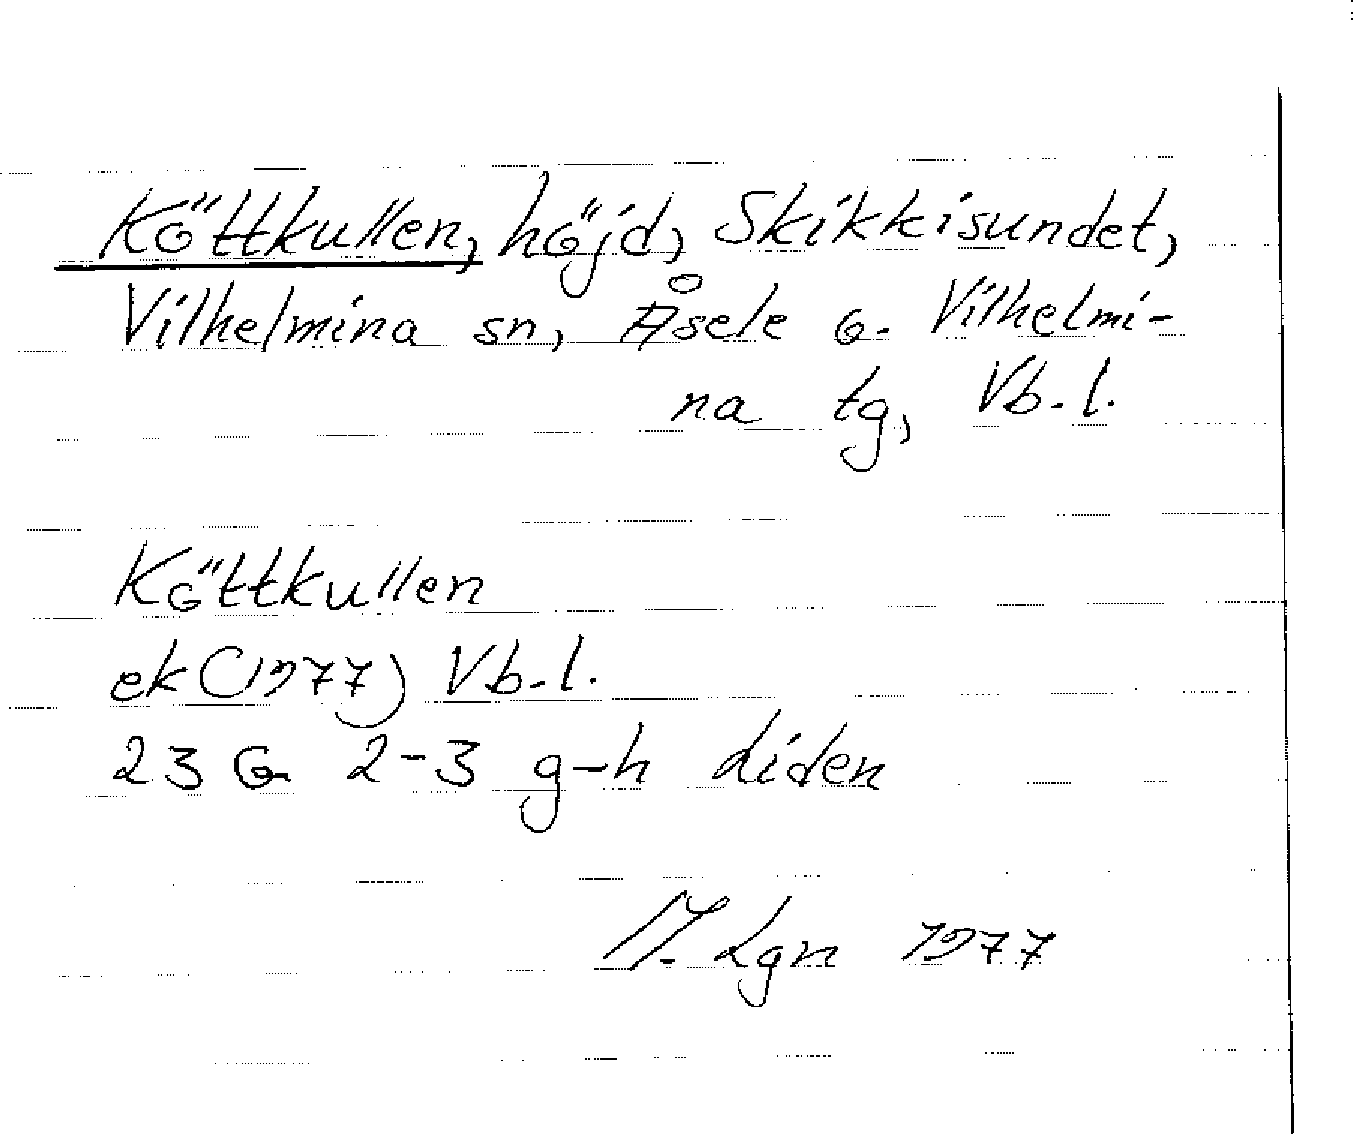 Köttkullen, höjd, Skikkisundet,
Vilhelmina sn, Åsele o. Vilhelmi-
na tg, Vb.l.
Köttkullen
ek (1977) Vb.l.
23 G 2-3 g-h Liden
M. Lgn 1977